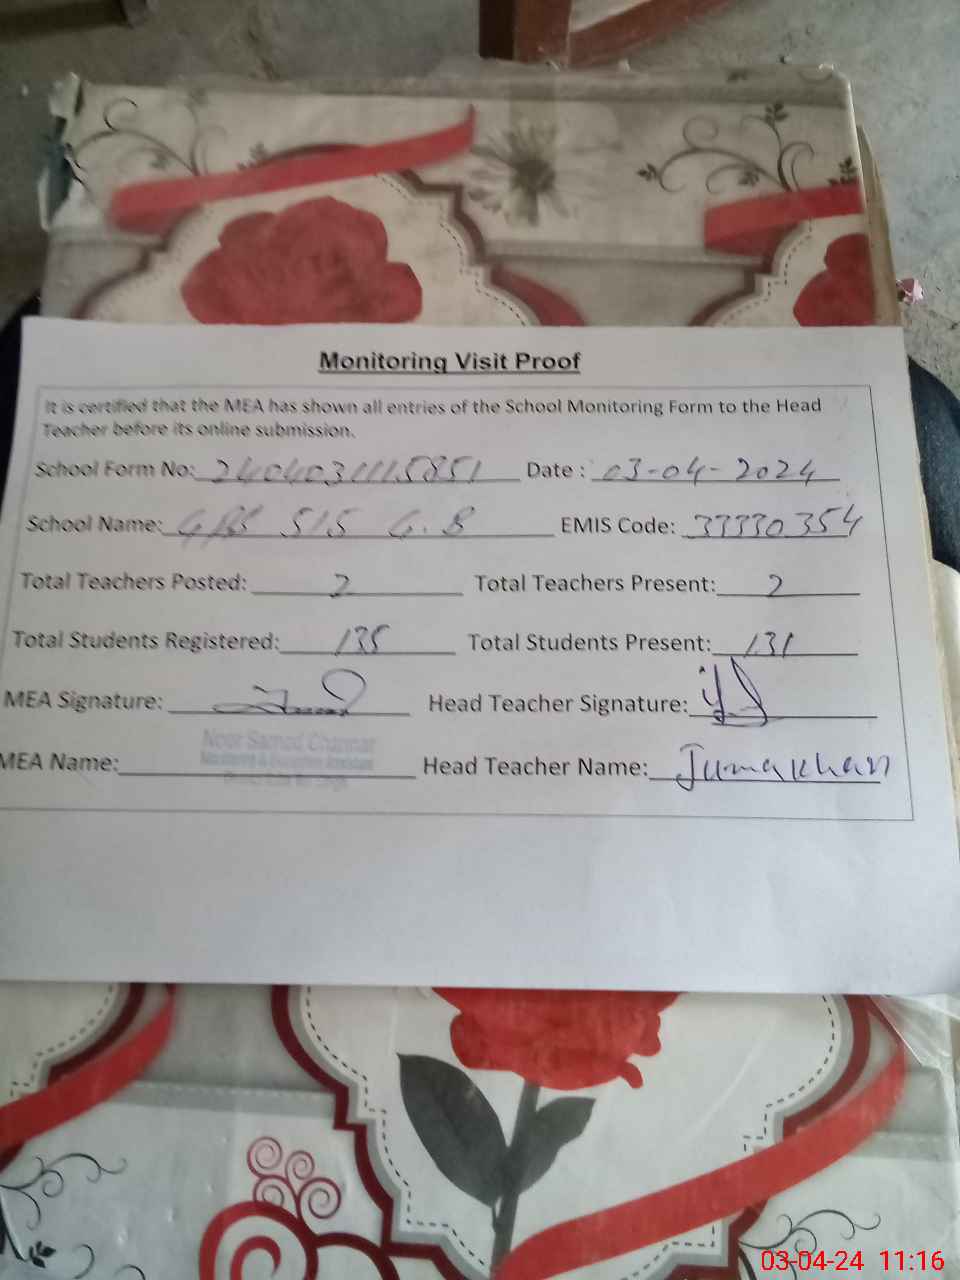 Monitoring Visit Proof
It is certified that the MEA has shown all entries of the School Monitoring Form to the Head
Teacher before its online submission.
School Form No: 2404031115851 Date : 03-04-2024
School Name: GPS 515 G.B EMIS Code: 33330354
Total Teachers Posted: 2 Total Teachers Present: 2
Total Students Registered: 135 Total Students Present: 131
MEA Signature: Head Teacher Signature:
Noor Samad Channar
Monitoring & Evaluation Assistant
MEA Name: Head Teacher Name: Juma khan
03-04-24 11:16